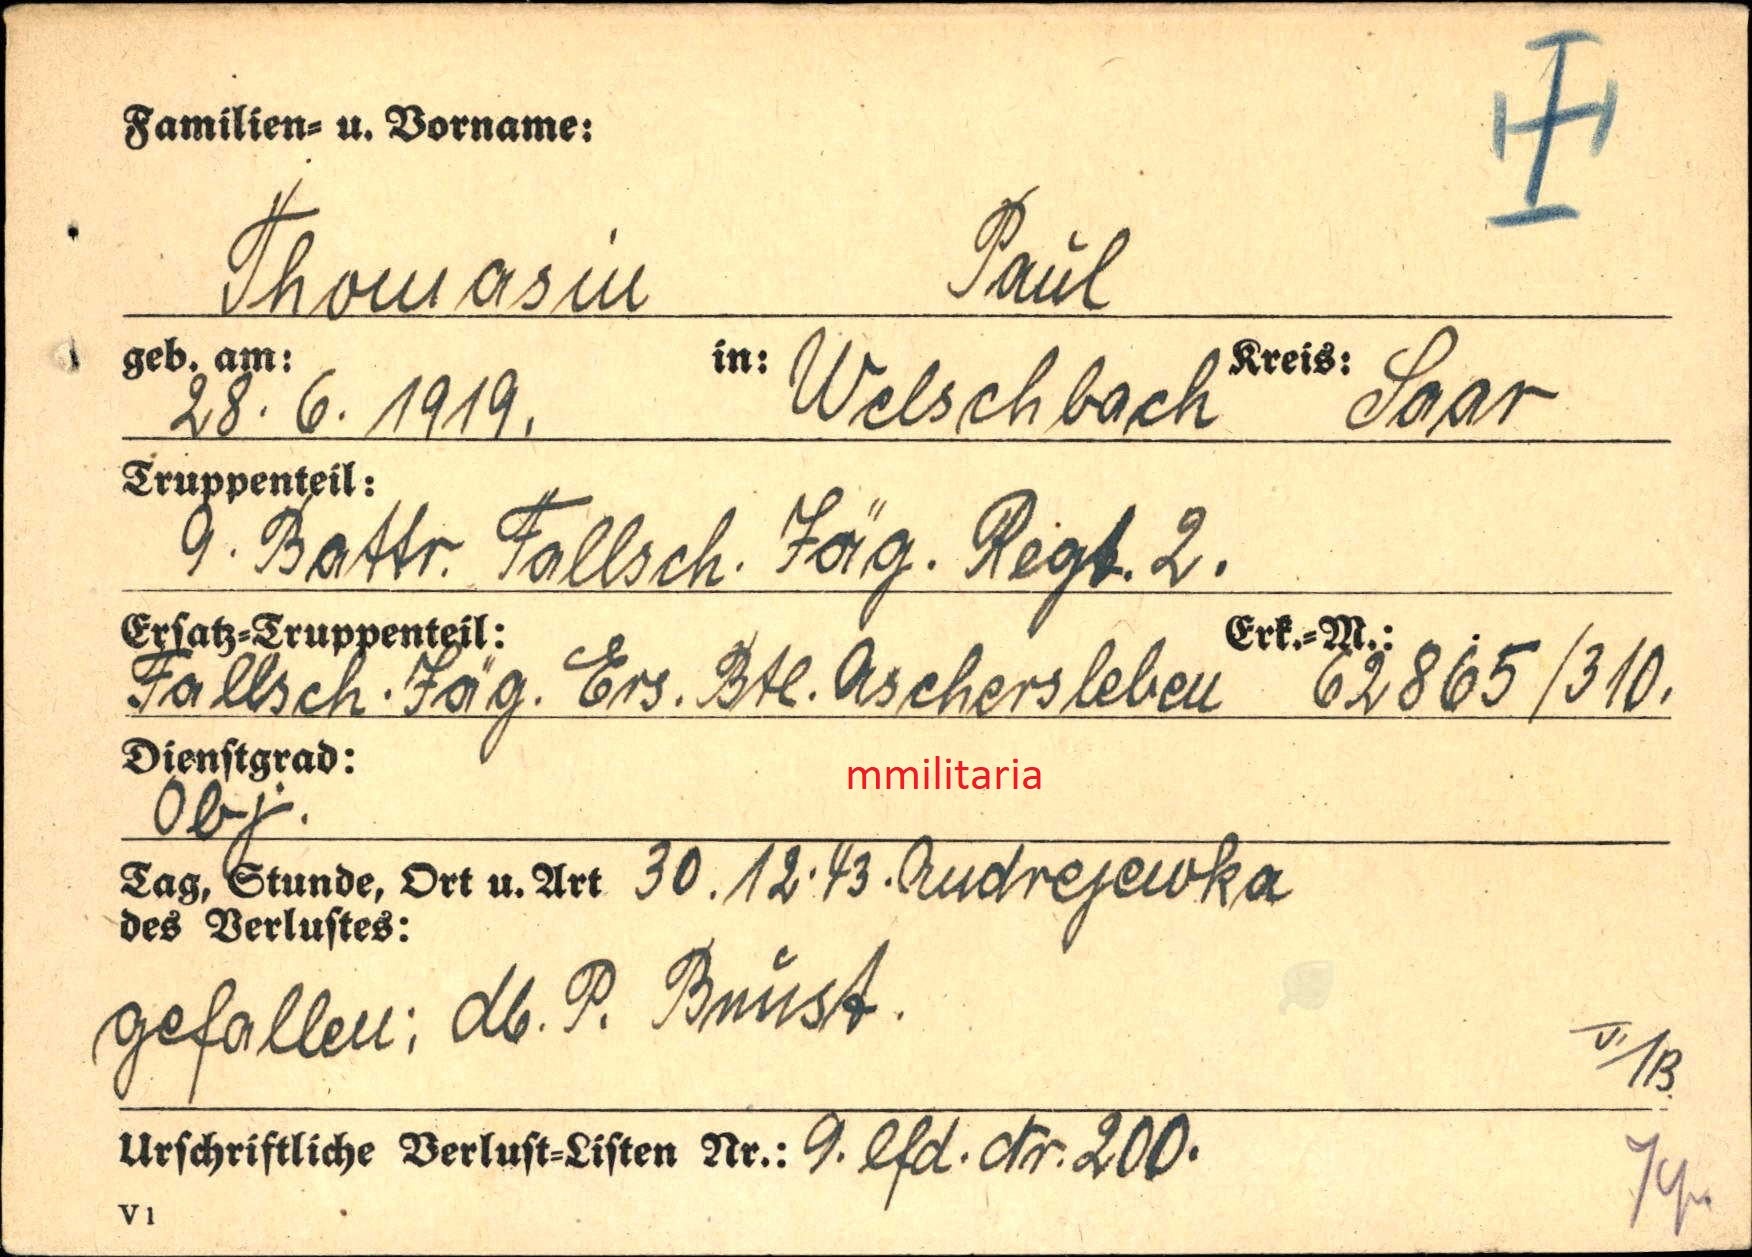 Familien- u. Vorname:
Thomasin Paul
geb. am: 28. 6. 1919. in: Welschbach Kreis: Saar
Truppenteil:
9. Battr. Fallsch. Jäg. Regt. 2.
Ersatz-Truppenteil: Erk.-M.:
Fallsch. Jäg. Ers. Btl. Aschersleben 62865/310.
Dienstgrad:
Obj.
mmilitaria
Tag, Stunde, Ort u. Art 30.12.43. Andrejewka
des Verlustes:
gefallen; db. P. Brust.
Urschriftliche Verlust-Listen Nr.: 9. lfd. Nr. 200.
V 1